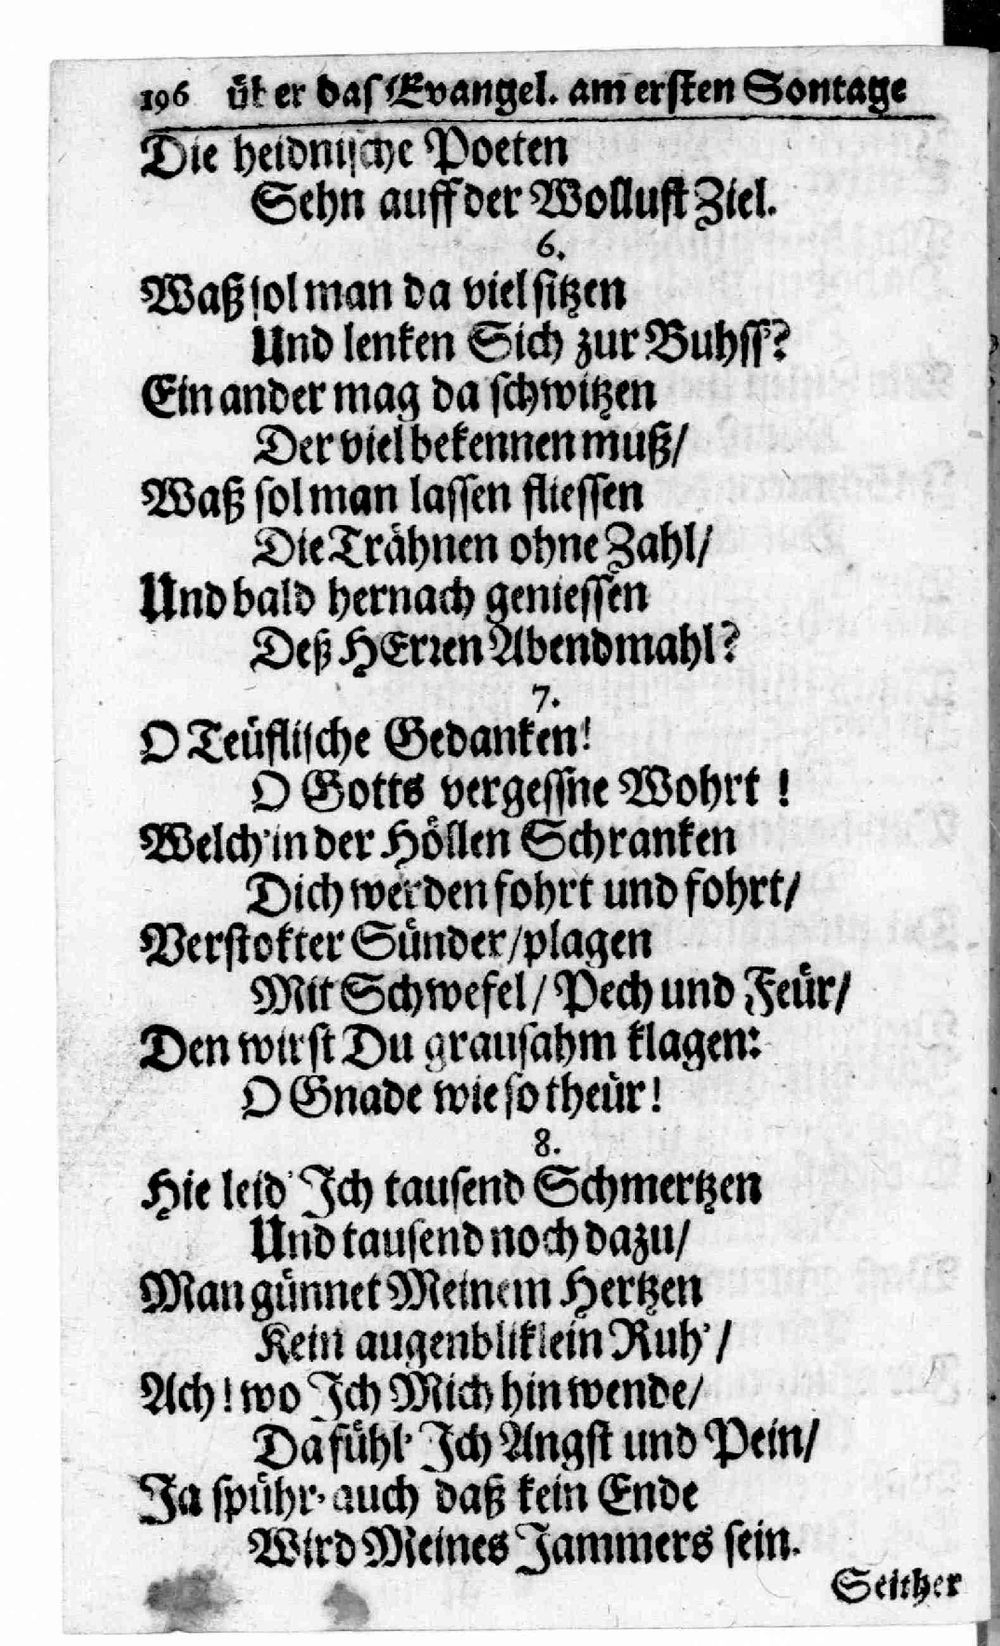 196 über das Evangel. am ersten Sontage
Die heidnische Poeten
Sehn auff der Wollust Ziel.
6.
Waß sol man da viel sitzen
Und lenken Sich zur Buhss'?
Ein ander mag da schwitzen
Der viel bekennen muß/
Waß sol man lassen fliessen
Die Trähnen ohne Zahl/
Und bald hernach geniessen
Deß HErren Abendmahl?
7.
O Teüflische Gedanken!
O Gotts vergessne Wohrt !
Welch' in der Höllen Schranken
Dich werden fohrt und fohrt/
Verstokter Sünder/plagen
Mit Schwefel/ Pech und Feür/
Den wirst Du grausahm klagen:
O Gnade wie so theür!
8.
Hie leid' Ich tausend Schmertzen
Und tausend noch dazu/
Man günnet Meinem Hertzen
Kein augenbliklein Ruh'/
Ach! wo Ich Mich hin wende/
Da fühl' Ich Angst und Pein/
Ja spühr' auch daß kein Ende
Wird Meines Jammers sein.
Seither